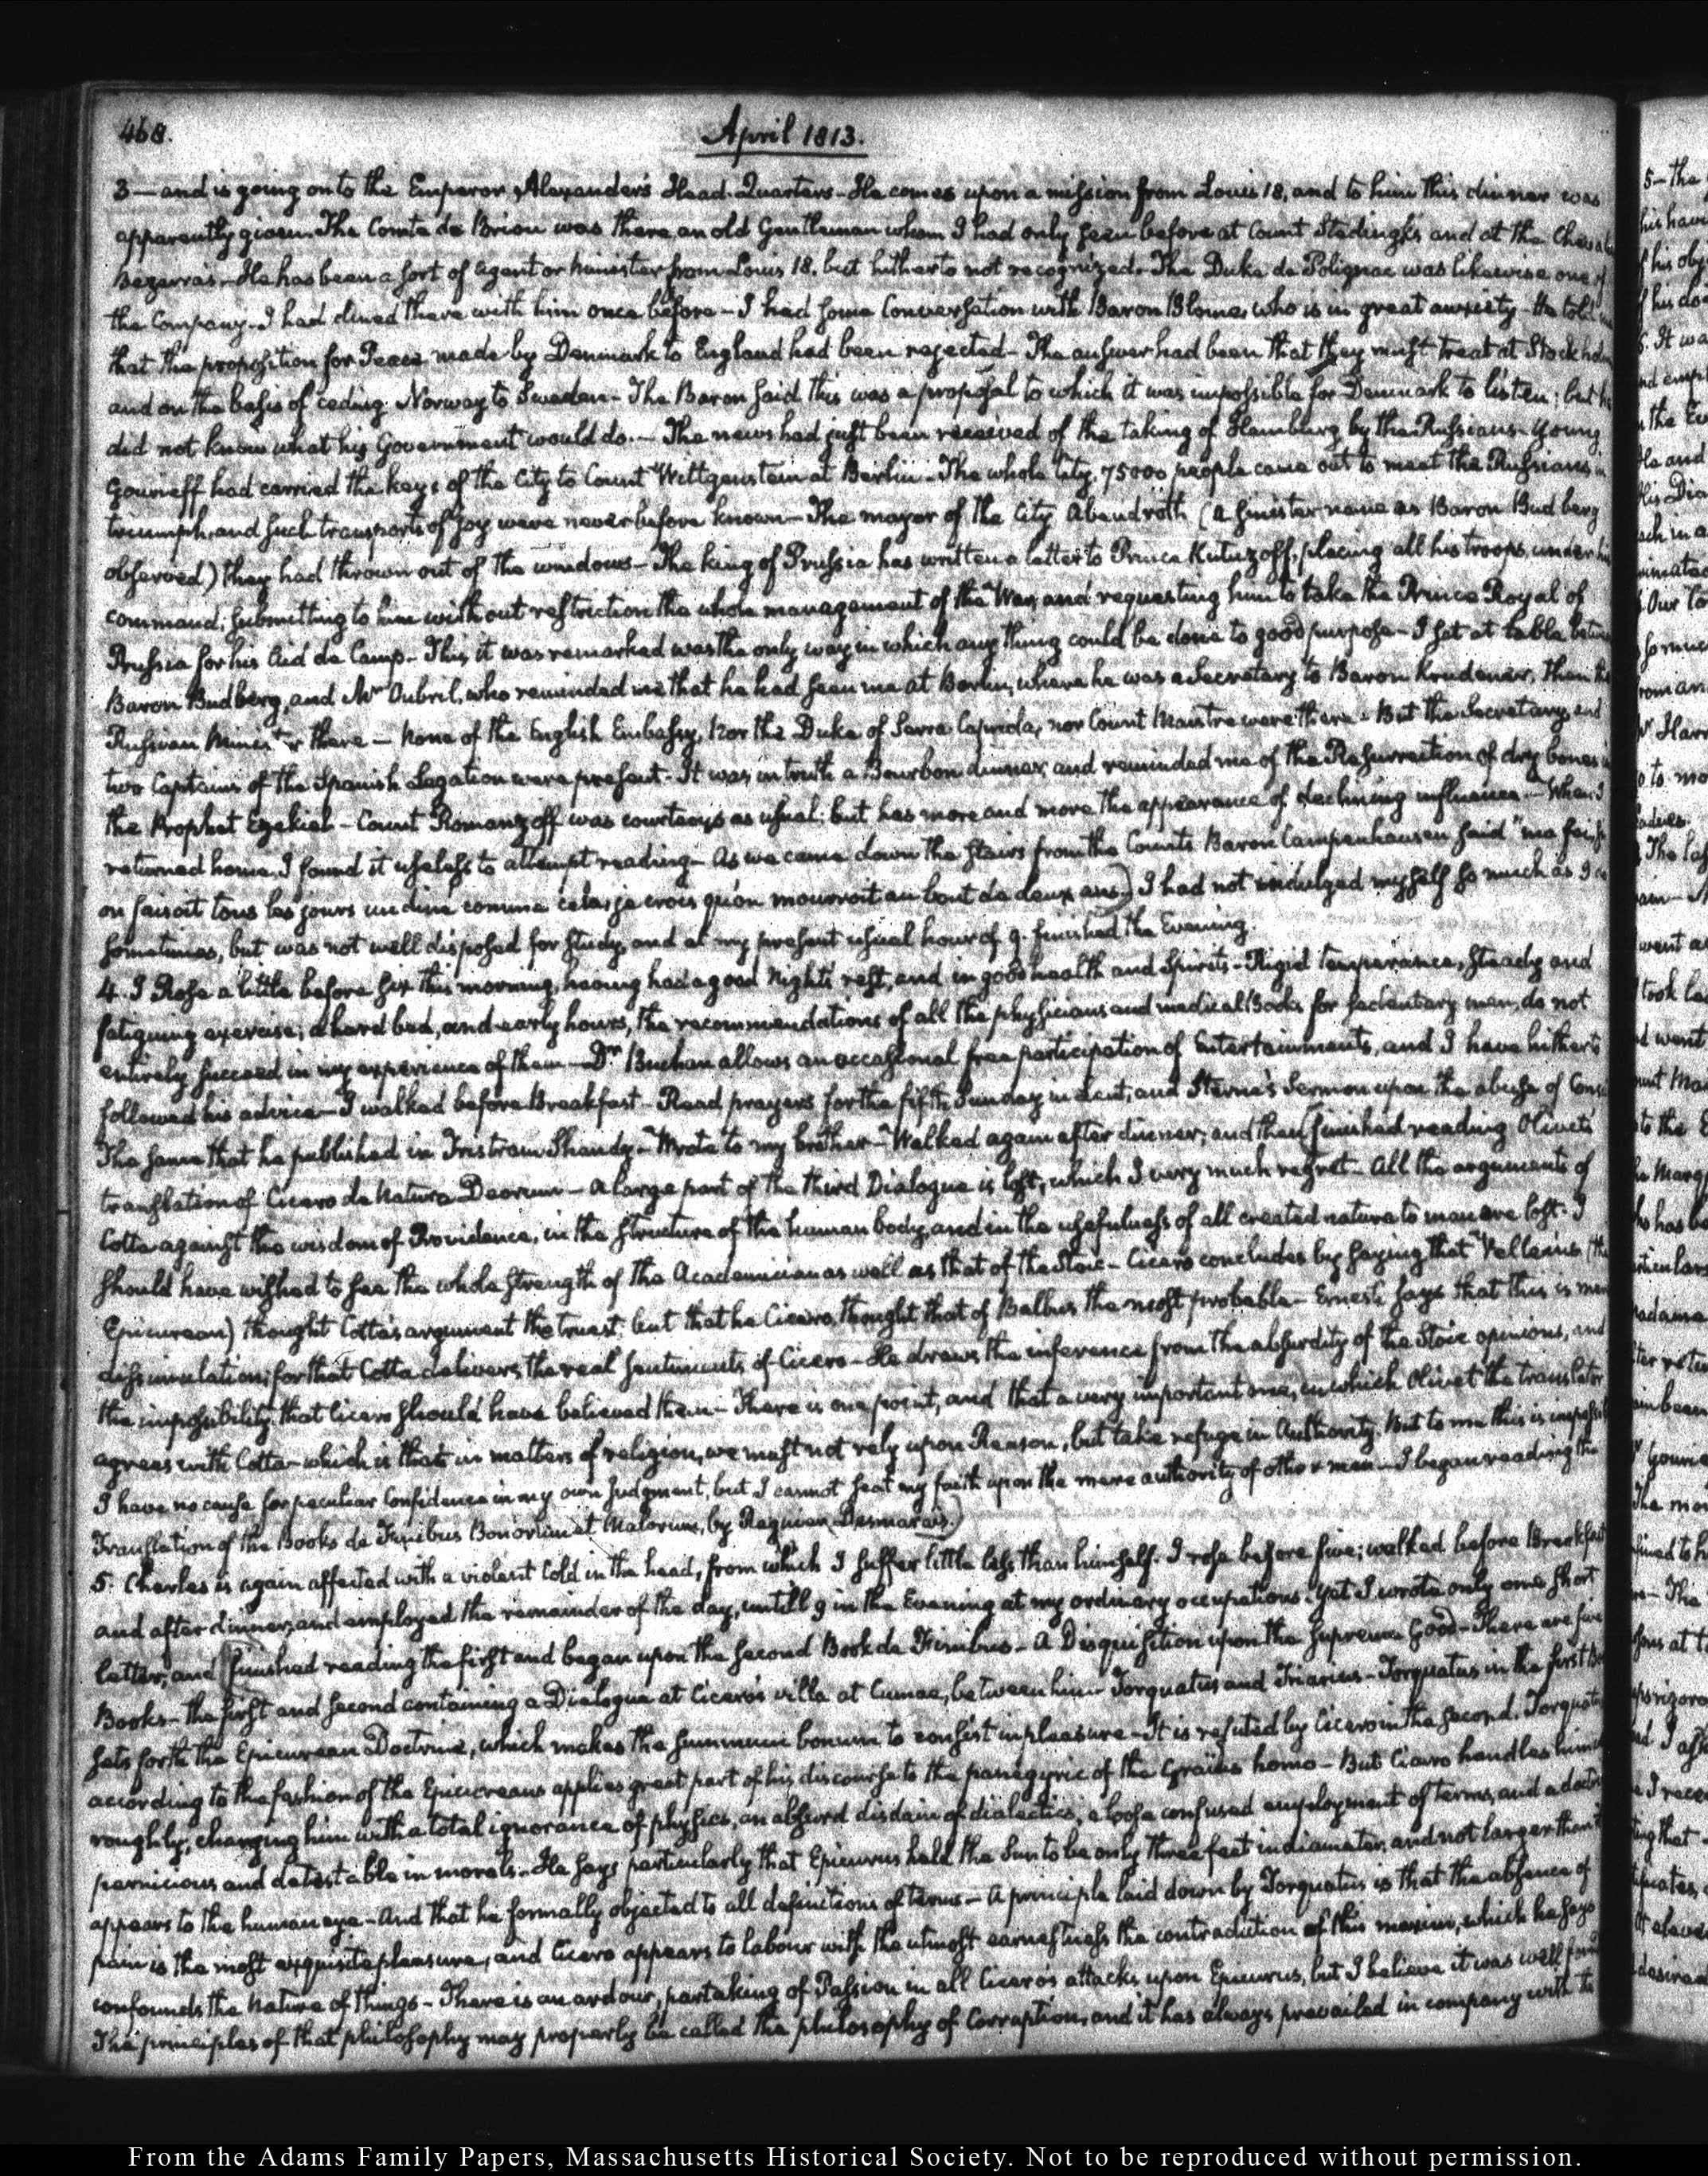 468.
April 1813.
3 — and is going on to the Emperor Alexander's Head-Quarters - He comes upon a mission from Louis 18, and to him this dinner was
apparently given. The Comte de Brion was there, an old Gentleman whom I had only seen before at Count Stedingk's and at the
Bezerra's. He has been a sort of Agent or minister from Louis 18. but hitherto not recognized. The Duke de Polignac was likewise one of
the Company. I had dined there with him once before - I had some Conversation with Baron Blome, who is in great anxiety - He told
that the proposition for Peace made by Denmark to England had been rejected - The answer had been that they must treat at Stockholm
and on the basis of ceding Norway to Sweden - The Baron said this was a proposal to which it was impossible for Denmark to listen; but he
did not know what his Government would do. - The news had just been received of the taking of Hamburg by the Russians - young
Gourieff had carried the keys of the City to Count Wittgenstein at Berlin - The whole City, 75000 people came out to meet the Russians in
triumph, and such transports of joy were never before known - The mayor of the City Abendroth (a sinister name as Baron Budberg
observed) they had thrown out of the windows - The king of Prussia has written a letter to Prince Kutuzoff, placing all his troops under his
command; submitting to him without restriction the whole management of the War, and requesting him to take the Prince Royal of
Prussia for his Aid de Camp. This it was remarked was the only way in which any thing could be done to good purpose - I sat at table between
Baron Budberg, and Mr Oubril, who reminded me that he had seen me at Berlin, where he was a Secretary to Baron Krudener, then the
Russian Minister there — None of the English Embassy, nor the Duke of Serra Capriola, nor Count Maistre were there - But the Secretary and
two Captains of the Spanish Legation were present - It was in truth a Bourbon dinner, and reminded me of the Resurrection of dry bones in
the Prophet Ezekiel - Count Romanzoff was courteous as usual: but has more and more the appearance of declining influence - When I
returned home, I found it useless to attempt reading - As we came down the stairs from the Counts Baron Campenhausen said "ma foi, si
on faisoit tous les jours un diné comme cela, je crois qu'on mourroit au bout de deux ans") I had not indulged myself so much as I do
sometimes, but was not well disposed for study, and at my present usual hour of 9. finished the Evening.
4. I Rose a little before six this morning, having had a good Night's rest, and in good health and Spirits - Rigid temperance, steady and
fatiguing exercise; a hard bed, and early hours, the recommendations of all the physicians and medical Books for sedentary men, do not
entirely succeed in my experience of them - Dr. Buchan allows an occasional free participation of Entertainments, and I have hitherto
followed his advice - I walked before Breakfast - Read prayers for the fifth Sunday in Lent; and Sterne's Sermon upon the abuse of
The same that he published in Tristram Shandy - Wrote to my brother - Walked again after dinner; and then finished reading Olivet's
translation of Cicero de Natura Deorum - A large part of the third Dialogue is lost, which I very much regret - All the arguments of
Cotta against the wisdom of Providence, in the structure of the human body, and in the usefulness of all created nature to man are lost. I
should have wished to see the whole strength of the Academician as well as that of the Stoic - Cicero concludes by saying that Velleius (the
Epicurean) thought Cotta's argument the truest: but that he Cicero, thought that of Balbus the most probable - Ernesti says that this is mere
dissimulation; for that Cotta delivers the real sentiments of Cicero - He draws the inference from the absurdity of the Stoic opinions, and
the impossibility that Cicero should have believed them - There is one point, and that a very important one, in which Olivet the translator
agrees with Cotta - which is that in matters of religion, we must not rely upon Reason, but take refuge in Authority. But to me this is impossible
I have no cause for peculiar Confidence in my own Judgment, but I cannot seat my faith upon the mere authority of other men - I began reading the
Translation of the Books de Finibus Bonorum et Malorum, by Regnier Desmarais.)
5. Charles is again affected with a violent Cold in the head, from which I suffer little less than himself. I rose before five; walked before Breakfast
and after dinner, and employed the remainder of the day, untill 9 in the Evening at my ordinary occupations. Yet I wrote only one short
letter, and finished reading the first and began upon the second Book de Finibus - A Disquisition upon the Supreme Good - There are five
Books - the first and second containing a Dialogue at Cicero's villa at Cumae, between him Torquatus and Triarius - Torquatus in the first
sets forth the Epicurean Doctrine, which makes the summum bonum to consist in pleasure - It is refuted by Cicero in the second. Torquatus
according to the fashion of the Epicureans applies great part of his discourse to the panegyric of the Graius homo - But Cicero handles him
roughly, charging him with a total ignorance of physics, an absurd disdain of dialectics, a loose confused employment of terms, and a doctrine
pernicious and detestable in morals - He says particularly that Epicurus held the Sun to be only three feet in diameter, and not larger than it
appears to the human eye - And that he formally objected to all definitions of terms - A principle laid down by Torquatus is that the absence of
pain is the most exquisite pleasure, and Cicero appears to labour with the utmost earnestness the contradiction of this maxim, which he says
confounds the nature of things - There is an ardour, partaking of Passion in all Cicero's attacks upon Epicurus, but I believe it was well
The principles of that philosophy may properly be called the philosophy of Corruption, and it has always prevailed in company with the
From the Adams Family Papers, Massachusetts Historical Society. Not to be reproduced without permission.